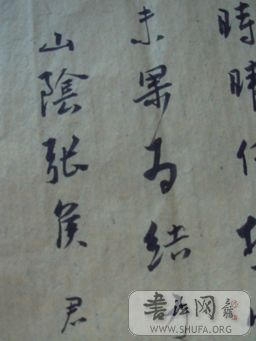 時晴佳
未果為結
山陰張侯
君
書法网
WWW.SHUFA.ORG